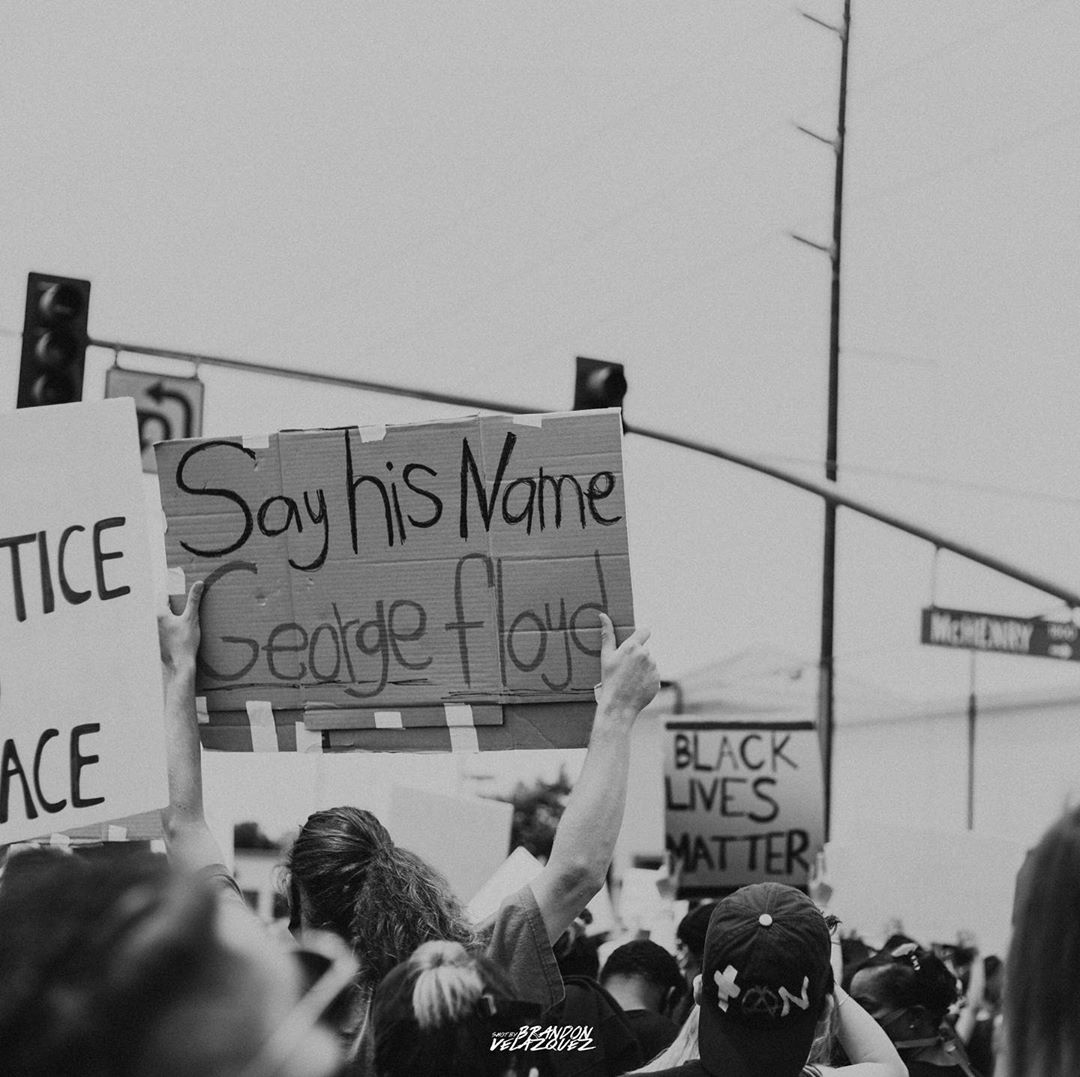 Say his Name
George floyd
TICE
ACE
McHENRY
BLACK
LIVES
MATTER
SHOT BY BRANDON
VELAZQUEZ